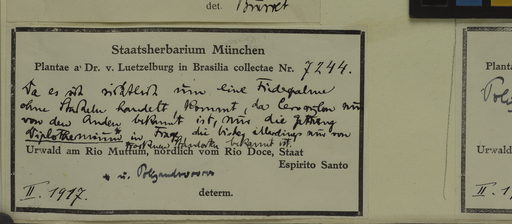 det. Burret
Staatsherbarium München
Plantae a Dr. v. Luetzelburg in Brasilia collectae Nr. 7244.
Da es sich sichtlich um eine Fiederpalme
ohne Stacheln handelt, kommt, da Ceroxylon nur
von den Anden bekannt ist, nur die Gattung
Diplothemium* in Frage, die bisher allerdings nur von
trockenen Standorten bekannt ist.
Urwald am Rio Muttum, nördlich vom Rio Doce, Staat
Espirito Santo
* u. Polyandrococos
II. 1917.
determ.
Staat
Plantae a
Urwald
II. 1